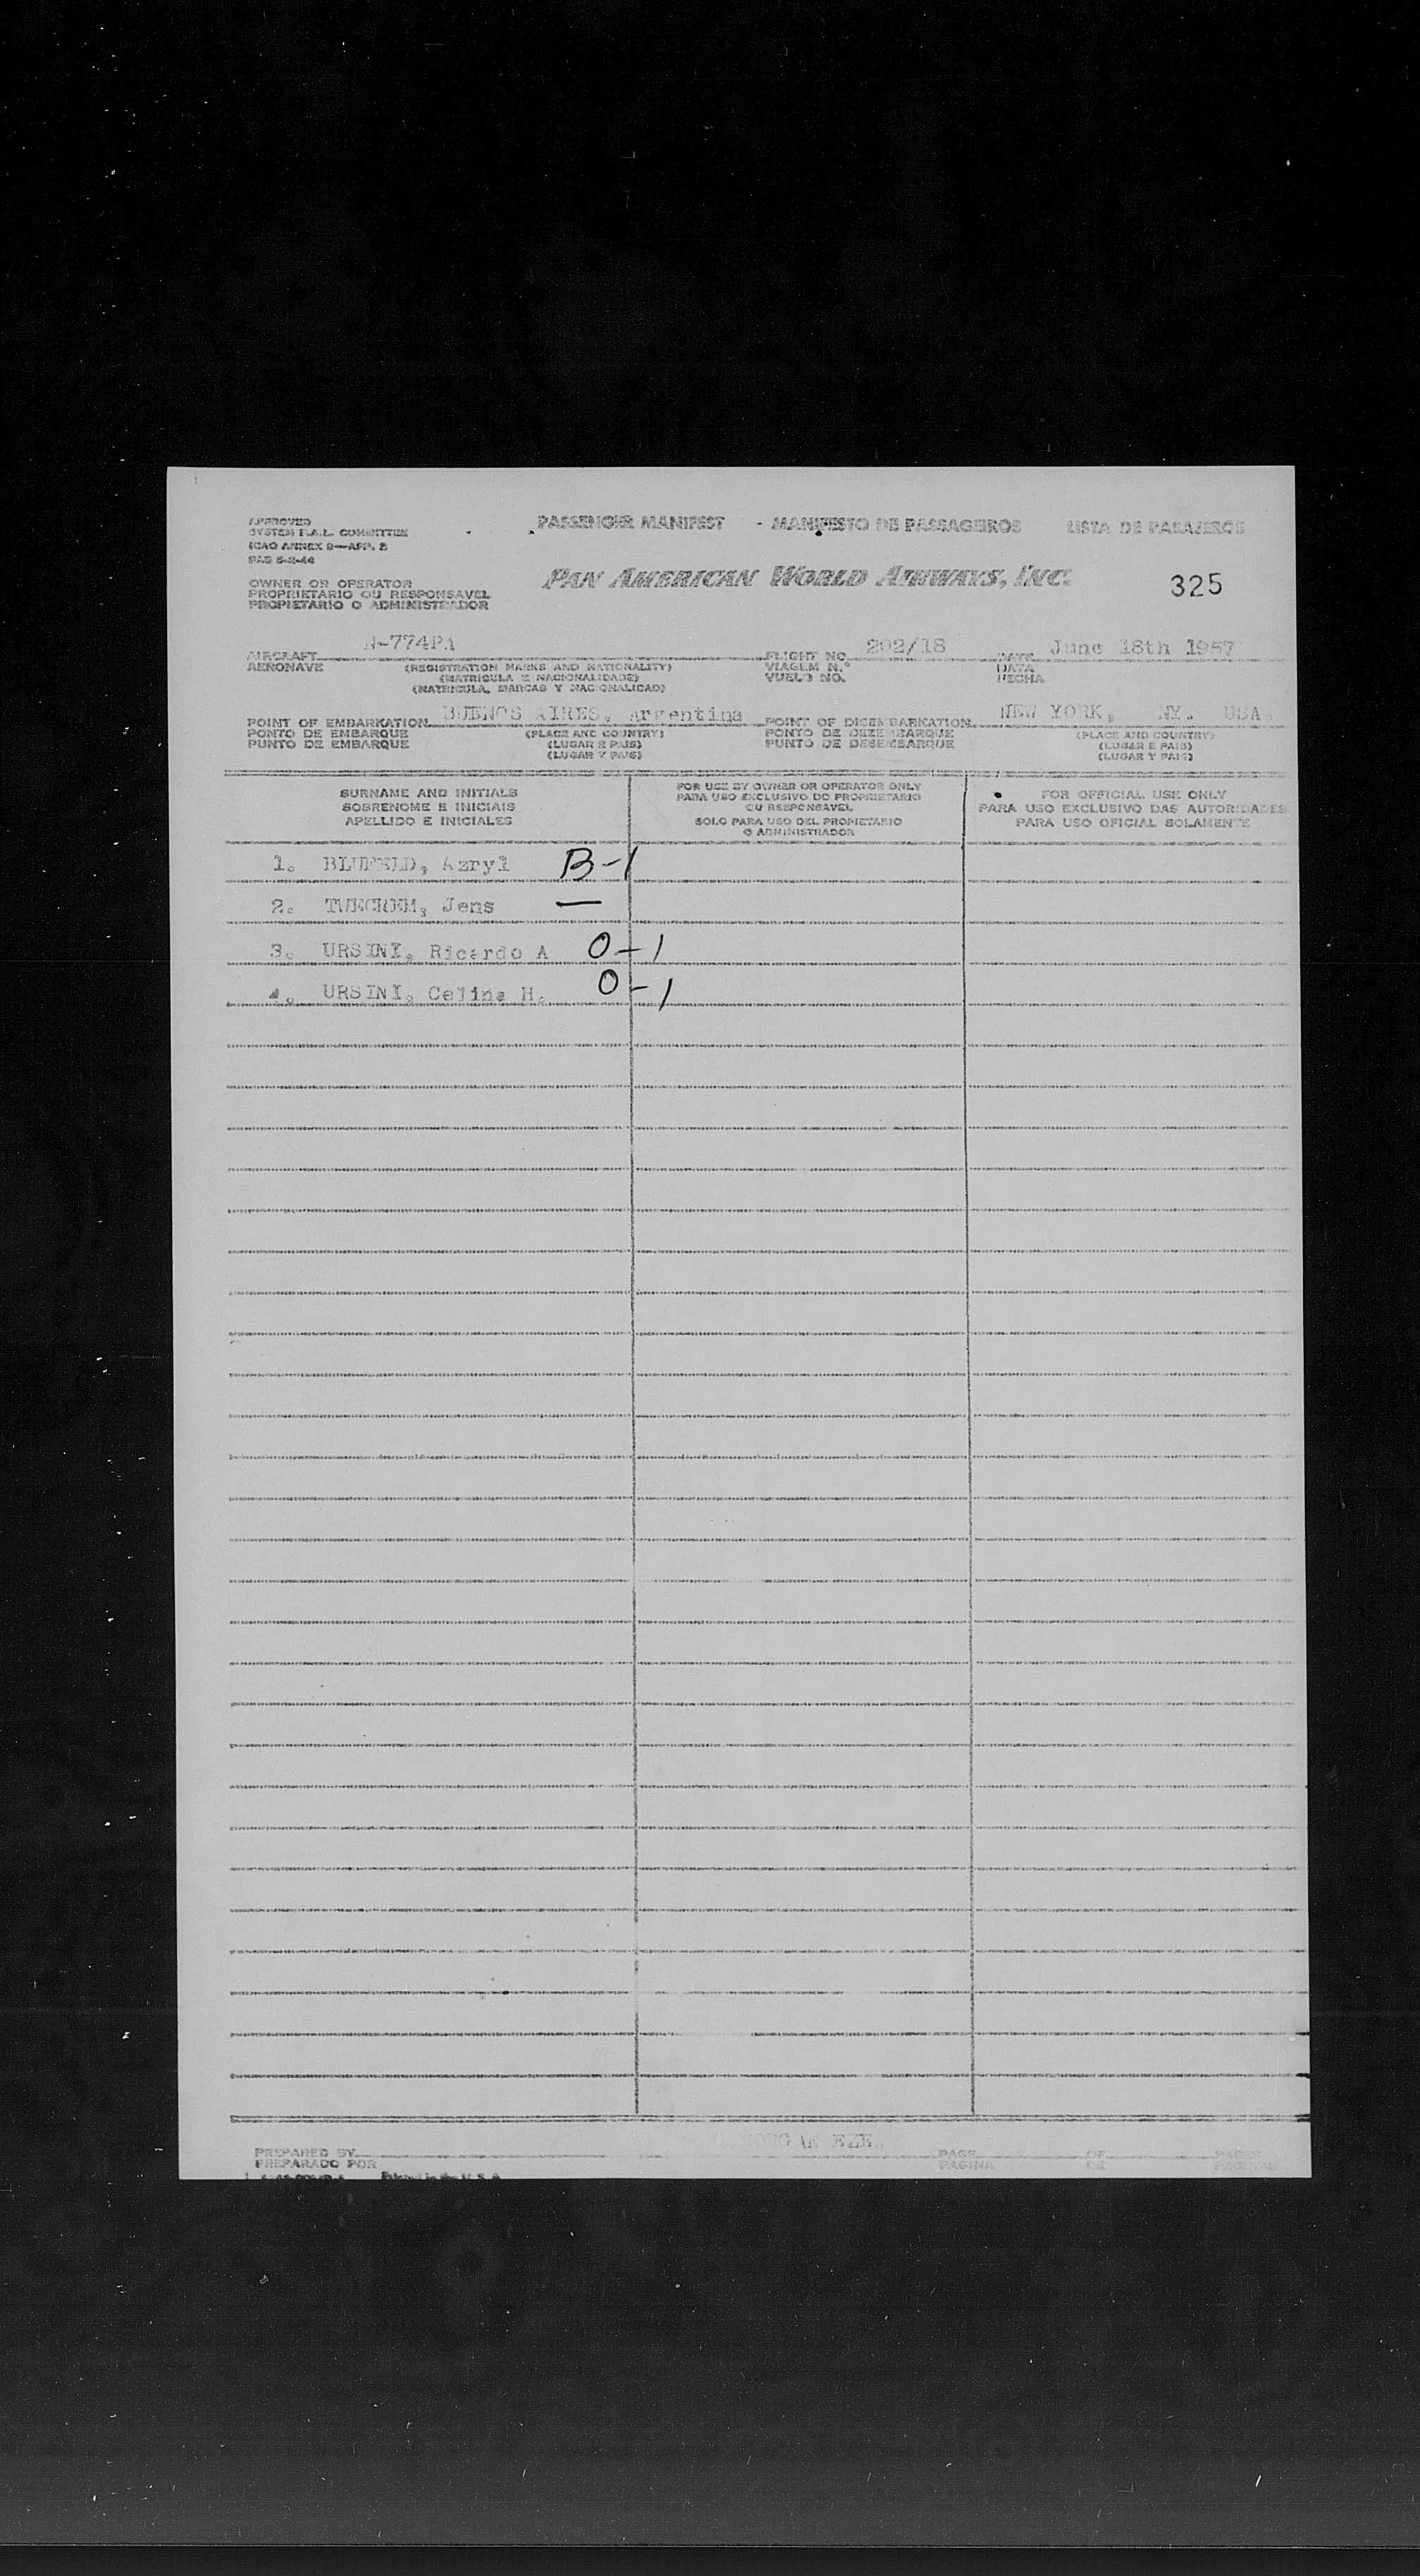 APPROVED
SYSTEM F.A.L. COMMITTEE
ICAO ANNEX 9—APP. 2
PASSENGER MANIFEST - MANIFESTO DE PASSAGEIROS LISTA DE PASAJEROS
OWNER OR OPERATOR
PROPRIETARIO OU RESPONSAVEL
PROPIETARIO O ADMINISTRADOR
PAN AMERICAN WORLD AIRWAYS, INC.
325
AIRCRAFT N-774PA FLIGHT NO. 202/18 DATE June 18th 1957
AERONAVE (REGISTRATION MARKS AND NATIONALITY) VIAGEM N.° DATA
(MATRICULA E NACIONALIDADE) VUELO NO. FECHA
(MATRICULA, MARCAS Y NACIONALIDAD)
POINT OF EMBARKATION BUENOS AIRES, Argentina POINT OF DISEMBARKATION NEW YORK, NY. USA.
PONTO DE EMBARQUE (PLACE AND COUNTRY) PONTO DE DEZEMBARQUE (PLACE AND COUNTRY)
PUNTO DE EMBARQUE (LUGAR E PAIS) PUNTO DE DESEMBARQUE (LUGAR E PAIS)
(LUGAR Y PAIS) (LUGAR Y PAIS)
SURNAME AND INITIALS
SOBRENOME E INICIAIS
APELLIDO E INICIALES
FOR USE BY OWNER OR OPERATOR ONLY
PARA USO EXCLUSIVO DO PROPRIETARIO
OU RESPONSAVEL
SOLO PARA USO DEL PROPIETARIO
O ADMINISTRADOR
FOR OFFICIAL USE ONLY
PARA USO EXCLUSIVO DAS AUTORIDADES
PARA USO OFICIAL SOLAMENTE
1. Azryl B-1
2. Jens —
3. URSINI, Ricardo A O-1
4. URSINI, Celina H. O-1
MORGAN EZE.
PREPARED BY PAGE OF PAGES
PREPARADO POR PAGINA DE PAGINAS
Printed in the U. S. A.